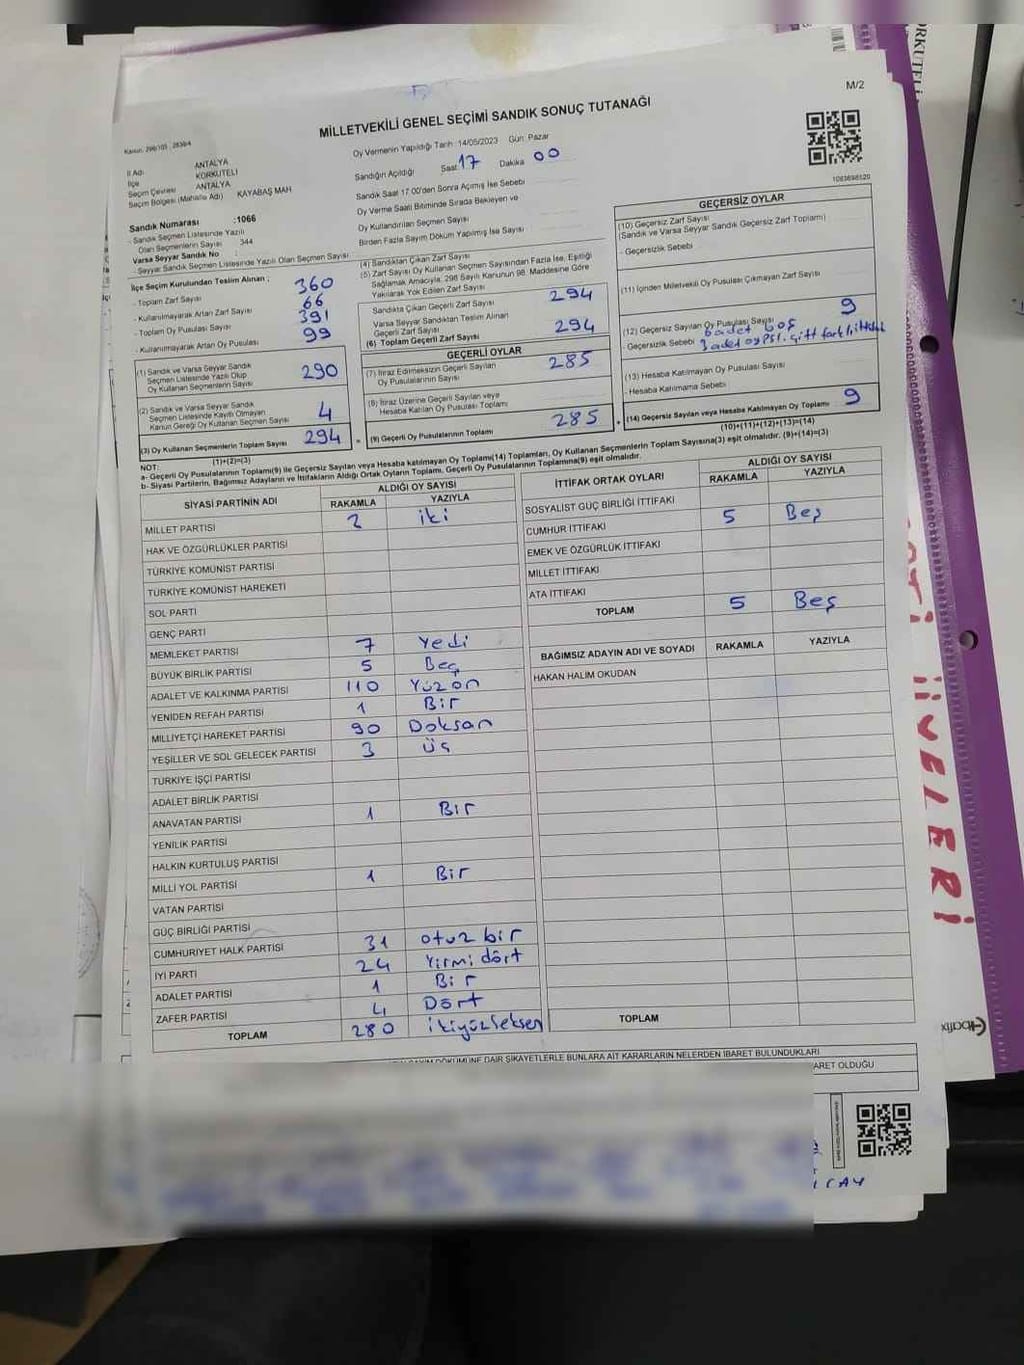 M/2
MİLLETVEKİLİ GENEL SEÇİMİ SANDIK SONUÇ TUTANAĞI
Oy Vermenin Yapıldığı Tarih :14/05/2023 Gün: Pazar
Sandığın Açıldığı Saat 17 Dakika 00
İl Adı ANTALYA
İlçe KORKUTELİ
Seçim Çevresi ANTALYA
Seçim Bölgesi (Mahalle Adı) KAYABAŞ MAH
Sandık Saat 17.00'den Sonra Açılmış İse Sebebi
Oy Verme Saati Bitiminde Sırada Bekleyen ve
Oy Kullandırılan Seçmen Sayısı
Birden Fazla Sayım Döküm Yapılmış İse Sayısı
1083698120
Sandık Numarası :1066
- Sandık Seçmen Listesinde Yazılı
Olan Seçmenlerin Sayısı : 344
Varsa Seyyar Sandık No
- Seyyar Sandık Seçmen Listesinde Yazılı Olan Seçmen Sayısı
İlçe Seçim Kurulundan Teslim Alınan ;
- Toplam Zarf Sayısı 360
- Kullanılmayarak Artan Zarf Sayısı 66
- Toplam Oy Pusulası Sayısı 391
- Kullanılmayarak Artan Oy Pusulası 99
(1) Sandık ve Varsa Seyyar Sandık
Seçmen Listesinde Yazılı Olup
Oy Kullanan Seçmenlerin Sayısı 290
(2) Sandık ve Varsa Seyyar Sandık
Seçmen Listesinde Kayıtlı Olmayan
Kanun Gereği Oy Kullanan Seçmen Sayısı 4
(3) Oy Kullanan Seçmenlerin Toplam Sayısı 294
(1)+(2)=(3)
(4) Sandıktan Çıkan Zarf Sayısı
(5) Zarf Sayısı Oy Kullanan Seçmen Sayısından Fazla İse, Eşitliği
Sağlamak Amacıyla, 298 Sayılı Kanunun 98. Maddesine Göre
Yakılarak Yok Edilen Zarf Sayısı
Sandıkta Çıkan Geçerli Zarf Sayısı 294
Varsa Seyyar Sandıktan Teslim Alınan
Geçerli Zarf Sayısı
(6) Toplam Geçerli Zarf Sayısı 294
GEÇERLİ OYLAR
(7) İtiraz Edilmeksizin Geçerli Sayılan
Oy Pusulalarının Sayısı 285
(8) İtiraz Üzerine Geçerli Sayılan veya
Hesaba Katılan Oy Pusulası Toplamı
(9) Geçerli Oy Pusulalarının Toplamı 285
GEÇERSİZ OYLAR
(10) Geçersiz Zarf Sayısı
(Sandık ve Varsa Seyyar Sandık Geçersiz Zarf Toplamı)
- Geçersizlik Sebebi
(11) İçinden Milletvekili Oy Pusulası Çıkmayan Zarf Sayısı
(12) Geçersiz Sayılan Oy Pusulası Sayısı 9
- Geçersizlik Sebebi 6 adet boş
3 adet oy psl. çift farklı ittifak
(13) Hesaba Katılmayan Oy Pusulası Sayısı
- Hesaba Katılmama Sebebi
(14) Geçersiz Sayılan veya Hesaba Katılmayan Oy Toplamı 9
(10)+(11)+(12)+(13)=(14)
NOT:
a- Geçerli Oy Pusulalarının Toplamı(9) ile Geçersiz Sayılan veya Hesaba Katılmayan Oy Toplamı(14) Toplamları, Oy Kullanan Seçmenlerin Toplam Sayısına(3) eşit olmalıdır. (9)+(14)=(3)
b- Siyasi Partilerin, Bağımsız Adayların ve İttifakların Aldığı Ortak Oyların Toplamı, Geçerli Oy Pusulalarının Toplamına(9) eşit olmalıdır.
SİYASİ PARTİNİN ADI ALDIĞI OY SAYISI
RAKAMLA YAZIYLA
MİLLET PARTİSİ 2 iki
HAK VE ÖZGÜRLÜKLER PARTİSİ
TÜRKİYE KOMÜNİST PARTİSİ
TÜRKİYE KOMÜNİST HAREKETİ
SOL PARTİ
GENÇ PARTİ
MEMLEKET PARTİSİ 7 Yedi
BÜYÜK BİRLİK PARTİSİ 5 Beş
ADALET VE KALKINMA PARTİSİ 110 Yüzon
YENİDEN REFAH PARTİSİ 1 Bir
MİLLİYETÇİ HAREKET PARTİSİ 90 Doksan
YEŞİLLER VE SOL GELECEK PARTİSİ 3 Üç
TÜRKİYE İŞÇİ PARTİSİ
ADALET BİRLİK PARTİSİ
ANAVATAN PARTİSİ 1 Bir
YENİLİK PARTİSİ
HALKIN KURTULUŞ PARTİSİ
MİLLİ YOL PARTİSİ 1 Bir
VATAN PARTİSİ
GÜÇ BİRLİĞİ PARTİSİ
CUMHURİYET HALK PARTİSİ 31 otuz bir
İYİ PARTİ 24 Yirmi dört
ADALET PARTİSİ 1 Bir
ZAFER PARTİSİ 4 Dört
TOPLAM 280 ikiyüzseksen
İTTİFAK ORTAK OYLARI ALDIĞI OY SAYISI
RAKAMLA YAZIYLA
SOSYALİST GÜÇ BİRLİĞİ İTTİFAKI
CUMHUR İTTİFAKI 5 Beş
EMEK VE ÖZGÜRLÜK İTTİFAKI
MİLLET İTTİFAKI
ATA İTTİFAKI
TOPLAM 5 Beş
BAĞIMSIZ ADAYIN ADI VE SOYADI RAKAMLA YAZIYLA
HAKAN HALİM OKUDAN
TOPLAM
DÖKÜMÜNE DAİR ŞİKAYETLERLE BUNLARA AİT KARARLARIN NELERDEN İBARET BULUNDUKLARI
ARET OLDUĞU